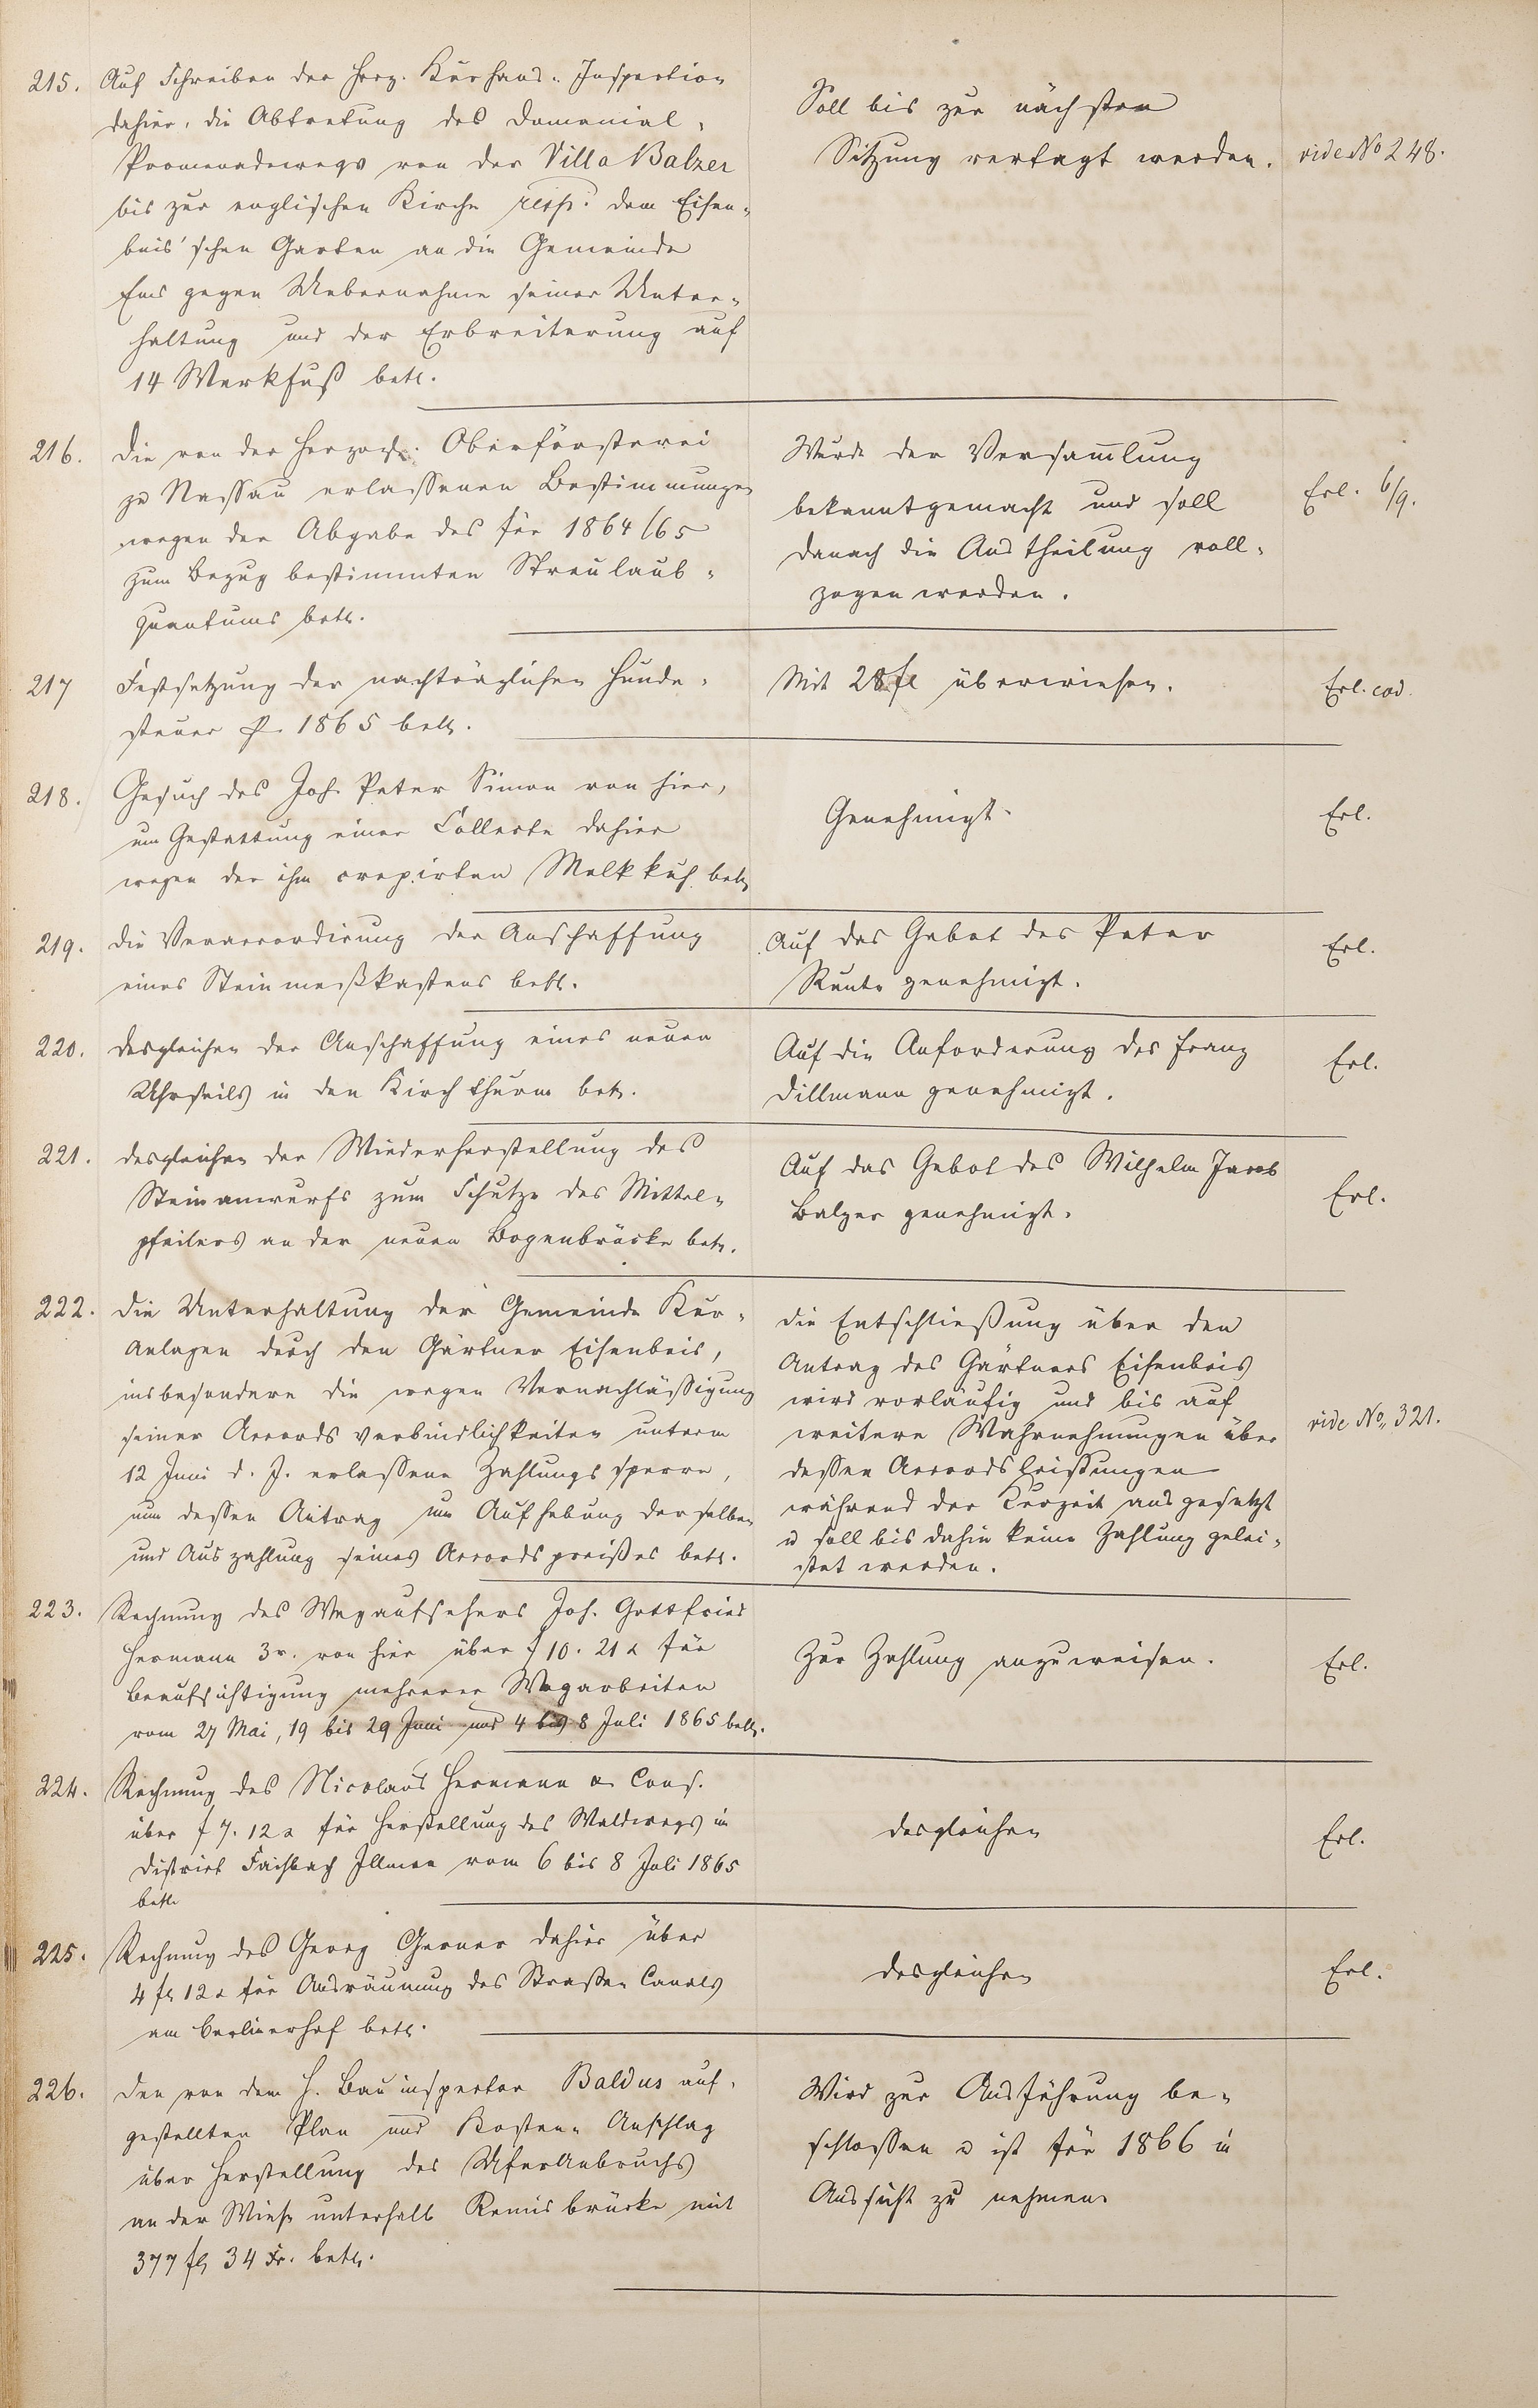 215. Auf Schreiben der Herz. Kurhaus-Inspection
dahier, die Abtretung des Domanial-
Promenadewegs von der Villa Balzer
bis zur englischen Kirche resp. dem Eisen-
beis'schen Garten an die Gemeinde
Ems gegen Uebernahme seiner Unter-
haltung und der Erbreiterung auf
14 Werkfuß betr.
Soll bis zur nächsten
Sitzung vertagt werden.
vide No 248.
216. Die von der Herzogl. Oberförsterei
zu Nassau erlassenen Bestimmungen
wegen der Abgabe des für 1864/65
zum Bezug bestimmten Streulaub-
quantums betr.
Wurde der Versam̅lung
bekanntgemacht und soll
danach die Austheilung voll-
zogen werden.
Erl. 6/9.
217 Festsetzung der nachträglichen Hunde-
steuer p. 1865 betr.
Mit 28 fl überwiesen.
Erl. eod.
218. Gesuch des Joh. Peter Simon von hier,
um Gestattung einer Collecte dahier
wegen der ihm crepirten Melkkuh betr
Genehmigt.
Erl.
219. Die Veraccordirung der Anschaffung
eines Steinmeßkastens betr.
Auf das Gebot des Peter
genehmigt.
Erl.
220. desgleichen der Anschaffung eines neuen
Uhrseils in den Kirchthurm betr.
Auf die Anforderung des Franz
Dillmann genehmigt.
Erl.
221. desgleichen der Wiederherstellung des
Steinanwurfs zum Schutze des Mittel-
pfeilers an der neuen Bogenbrücke betr.
Auf das Gebot des Wilhelm Jacob
Balzer genehmigt.
Erl.
222. Die Unterhaltung der Gemeinde Kur-
Anlagen durch den Gärtner Eisenbeis,
insbesondere die wegen Vernachläßigung
seiner Accordsverbindlichkeiten unterm
12 Juni d. J. erlassene Zahlungssperre,
nun dessen Antrag um Aufhebung derselben
und Auszahlung seines Accordspreißes betr.
Die Entschließung über den
Antrag des Gärtners Eisenbeis
wird vorläufig und bis auf
weitere Wahrnehmungen über
dessen Accordsleistungen
während der Kurzeit ausgesetzt
u soll bis dahin keine Zahlung gelei-
stet werden.
vide No. 321.
223. Rechnung des Wegaufsehers Joh. Gottfried
Hermann 3r. von hier über f 10. 21 x für
Beaufsichtigung mehrerer Wegarbeiten
vom 27 Mai, 19 bis 29 Juni und 4 bis 8 Juli 1865 betr.
Zur Zahlung anzuweisen.
Erl.
224. Rechnung des Nicolaus Hermann & Cons.
über f 7. 12 x für Herstellung des Waldwegs im
District vom 6 bis 8 Juli 1865
betr
desgleichen
Erl.
225. Rechnung des Georg dahier über
4 fl 12 x für Ausräumung des Straßen Canals
am Berlinerhof betr.
desgleichen
Erl.
226. Den von dem H. Bauinspector Baldus auf-
gestellten Plan und Kosten-Anschlag
über Herstellung des Uferanbruchs
an der Wiese unterhalb Remisbrücke mit
377 fl 34 Xr. betr.
Wird zur Ausführung be-
schlossen u ist für 1866 in
Aussicht zu nehmen.